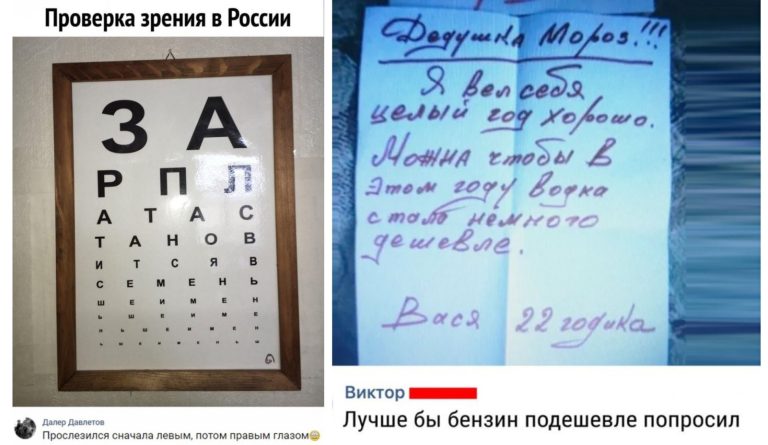 Проверка зрения в России
З А
Р П Л
А Т А С
Т А Н О В
И Т С Я В
С Е М Е Н Ь
Ш Е И М Е Н
Далер Давлетов
Прослезился сначала левым, потом правым глазом😳
Дедушка Мороз!!!
Я вел себя
целый год хорошо.
Можна чтобы в
этом году водка
стало немного
дешевле.
Вася 22 годика
Виктор
Лучше бы бензин подешевле попросил